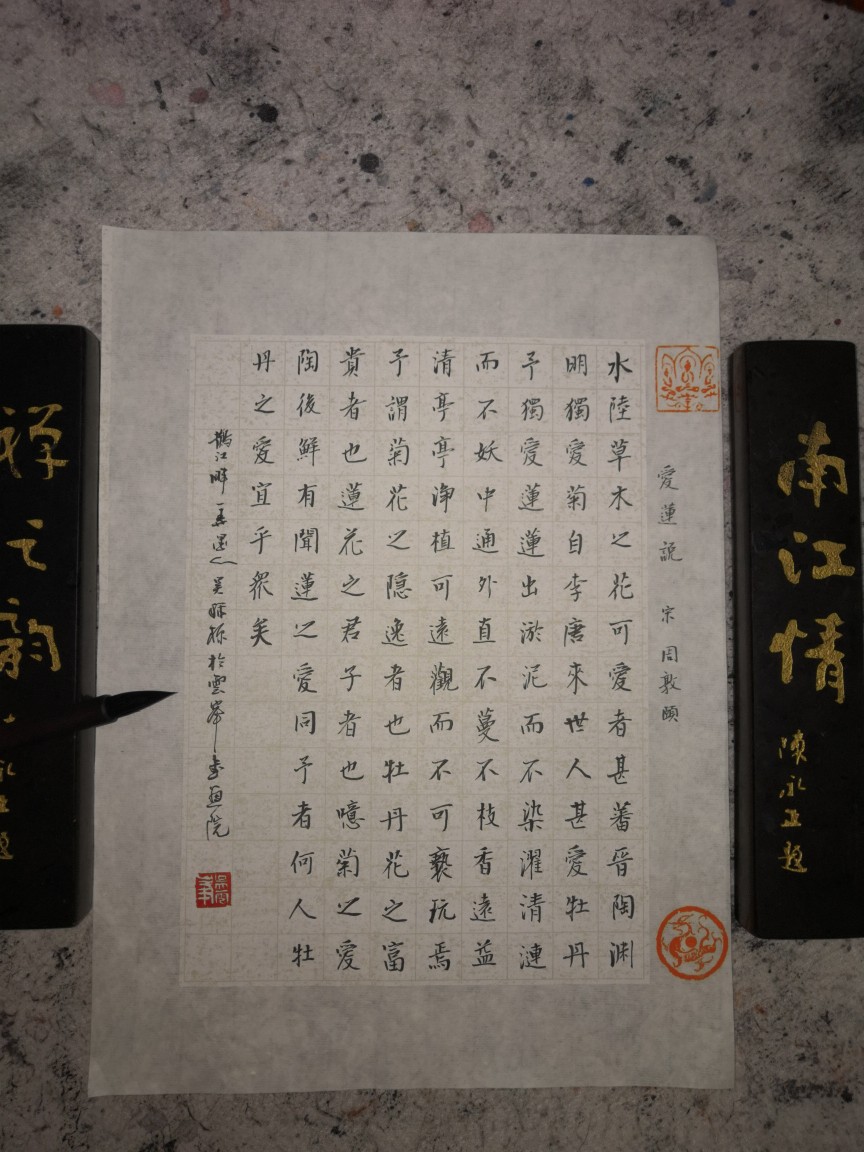 南江情
陳永正題
愛蓮説 宋 周敦頤
水陸草木之花可愛者甚蕃晉陶渊
明獨愛菊自李唐來世人甚愛牡丹
予獨愛蓮蓮出淤泥而不染濯清漣
而不妖中通外直不蔓不枝香遠益
清亭亭浄植可遠觀而不可褻玩焉
予謂菊花之隐逸者也牡丹花之富
貴者也蓮花之君子者也噫菊之愛
陶後鮮有聞蓮之愛同予者何人牡
丹之愛宜乎衆矣
江畔 於雲峯書画院
禅之韵
永正題